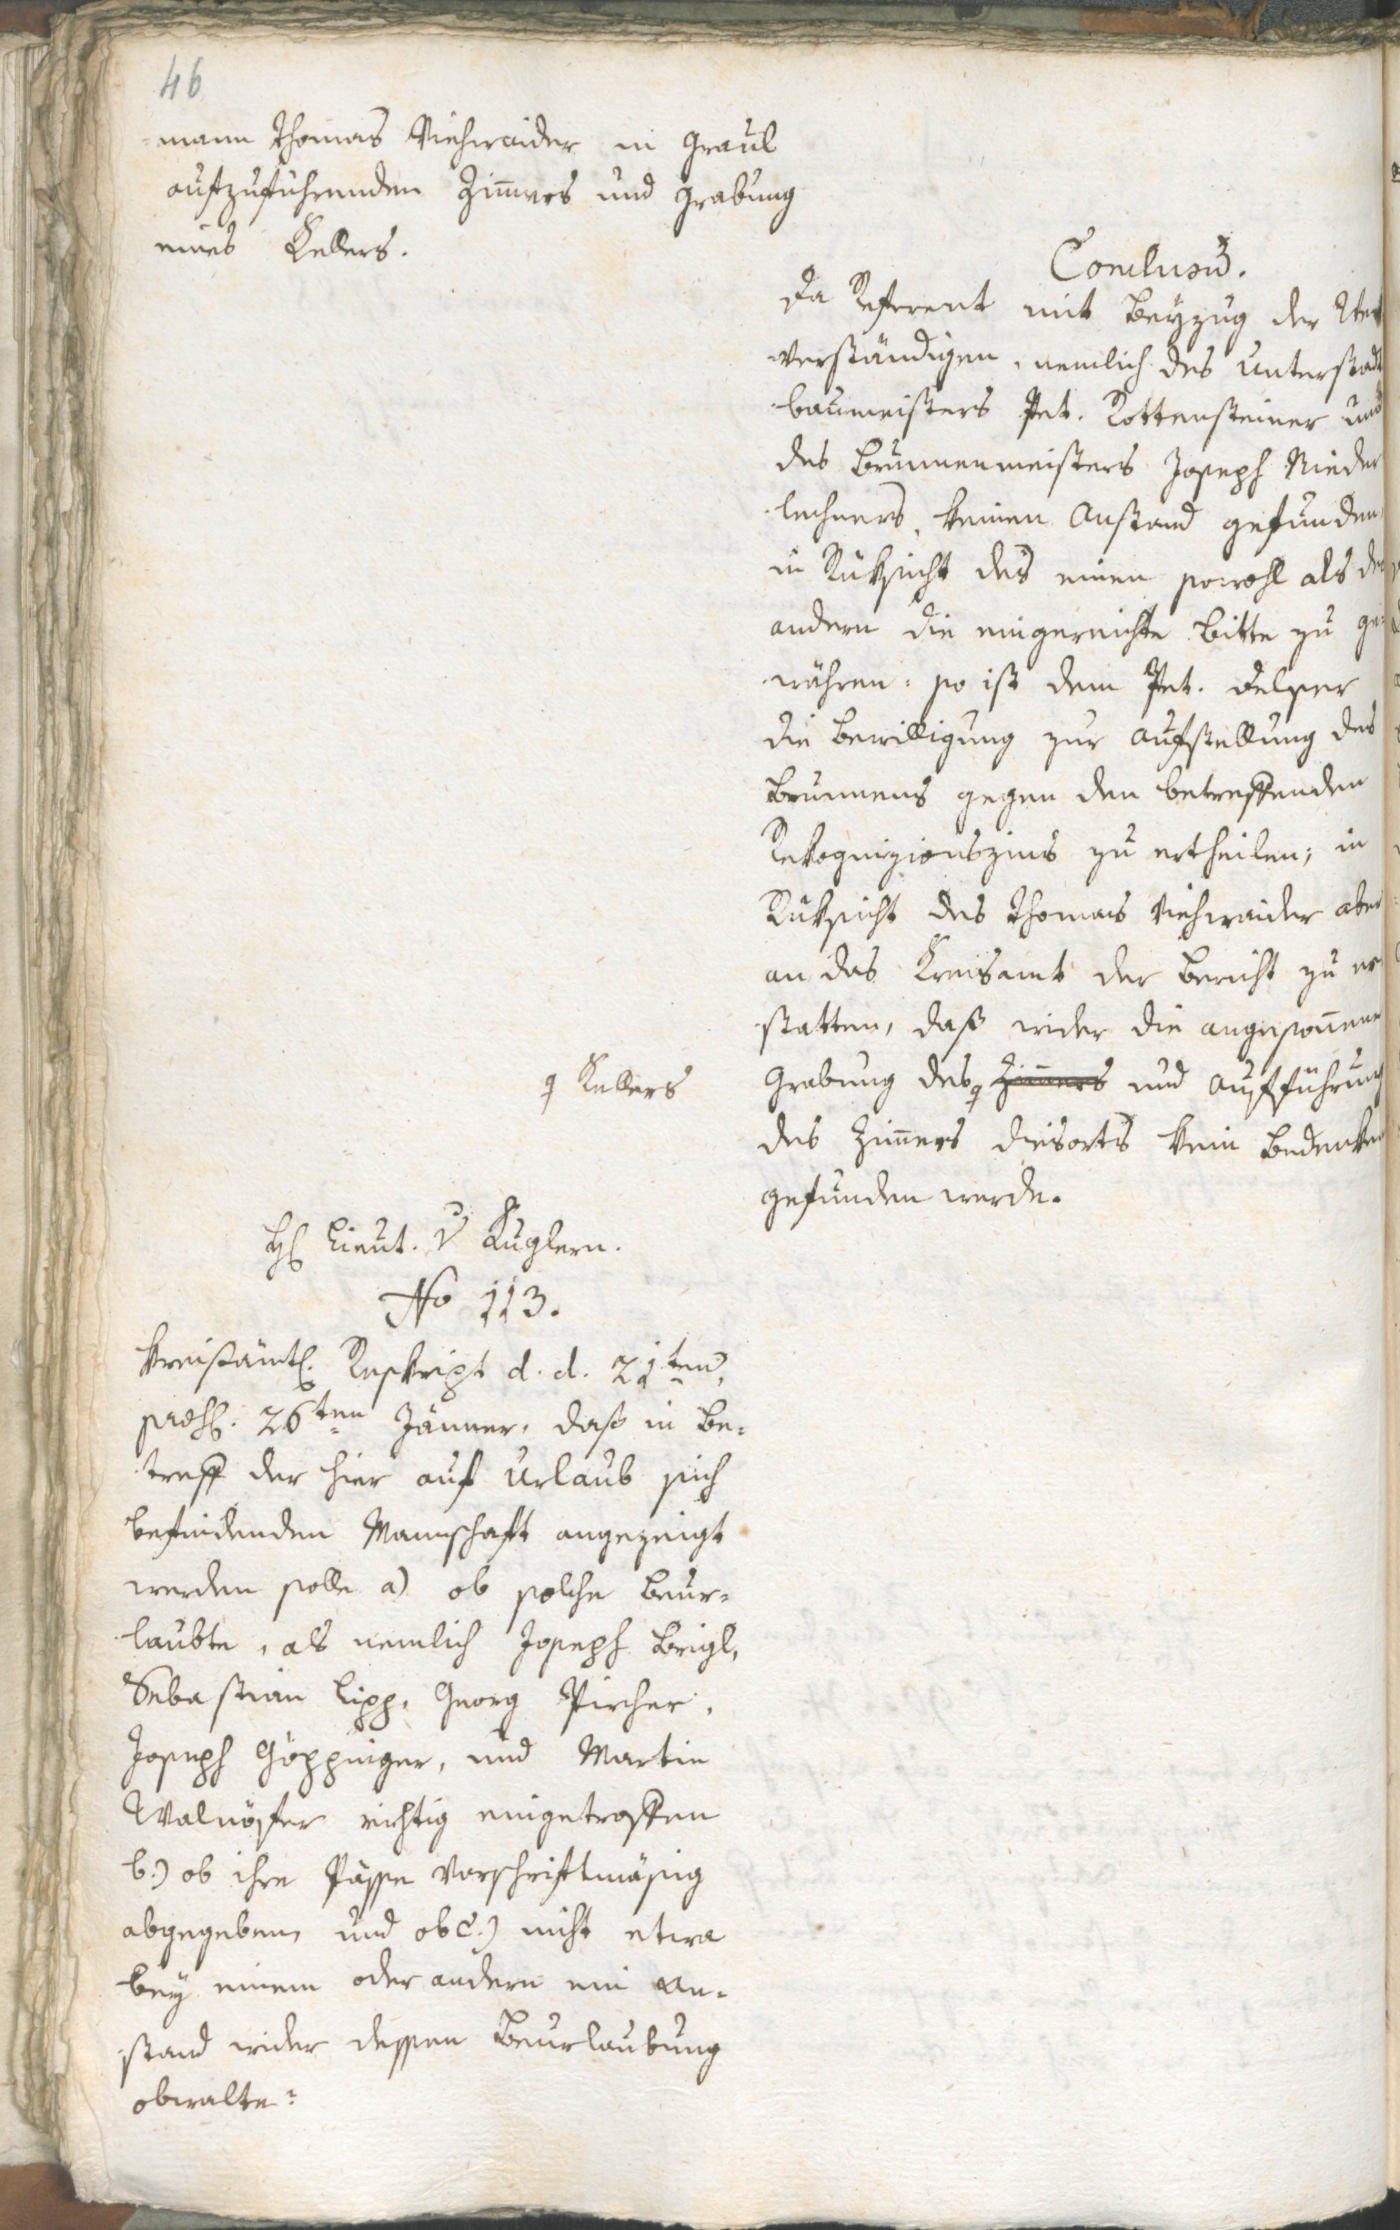 46
mann Thomas Viehwaider in Graul
aufzuführenden Zim̅ers und Grabung
eines Kellers.
Conclusum.
Da Referent mit Beyzug der
verständigen, nemlich des Unterstadt
baumeisters Pet. Rottensteiner und
des Brunnenmeisters Joseph Nieder
lechners, keinen Anstand gefunden,
in Rüksicht des einen sowohl als des
andern die eingereichte Bitte zu ge¬
währen: so ist dem Pet. Delser
die Bewilligung zur Aufstellung des
Brunnens gegen den betreffenden
Rekognizionszins zu ertheilen; in
Rüksicht des Thomas Viehwaider aber
an das Kreisamt der Bericht zu er
statten, daß wider die angesonnene
Grabung des Zim̅ers und Aufführung
Kellers
des Zim̅ers diesorts kein Bedenken
gefunden werde.
H. Lieut. v Kuglern.
No 113.
Kreisämtl. Reskript d. d. 21ten,
präs. 26ten Jänner, daß in Be¬
treff der hier auf Urlaub sich
befindenden Mannschaft angezeigt
werden solle a) ob solche Beur¬
laubte, als nemlich Joseph Brigl,
Sebastian Lipp, Georg Pircher,
Joseph Göppinger, und Martin
Walnöfer richtig eingetroffen
b.) ob ihre Pässe vorschriftmäsig
abgegeben, und ob c.) nicht etwa
bey einem oder andern ein An¬
stand wider dessen Beurlaubung
obwalte?